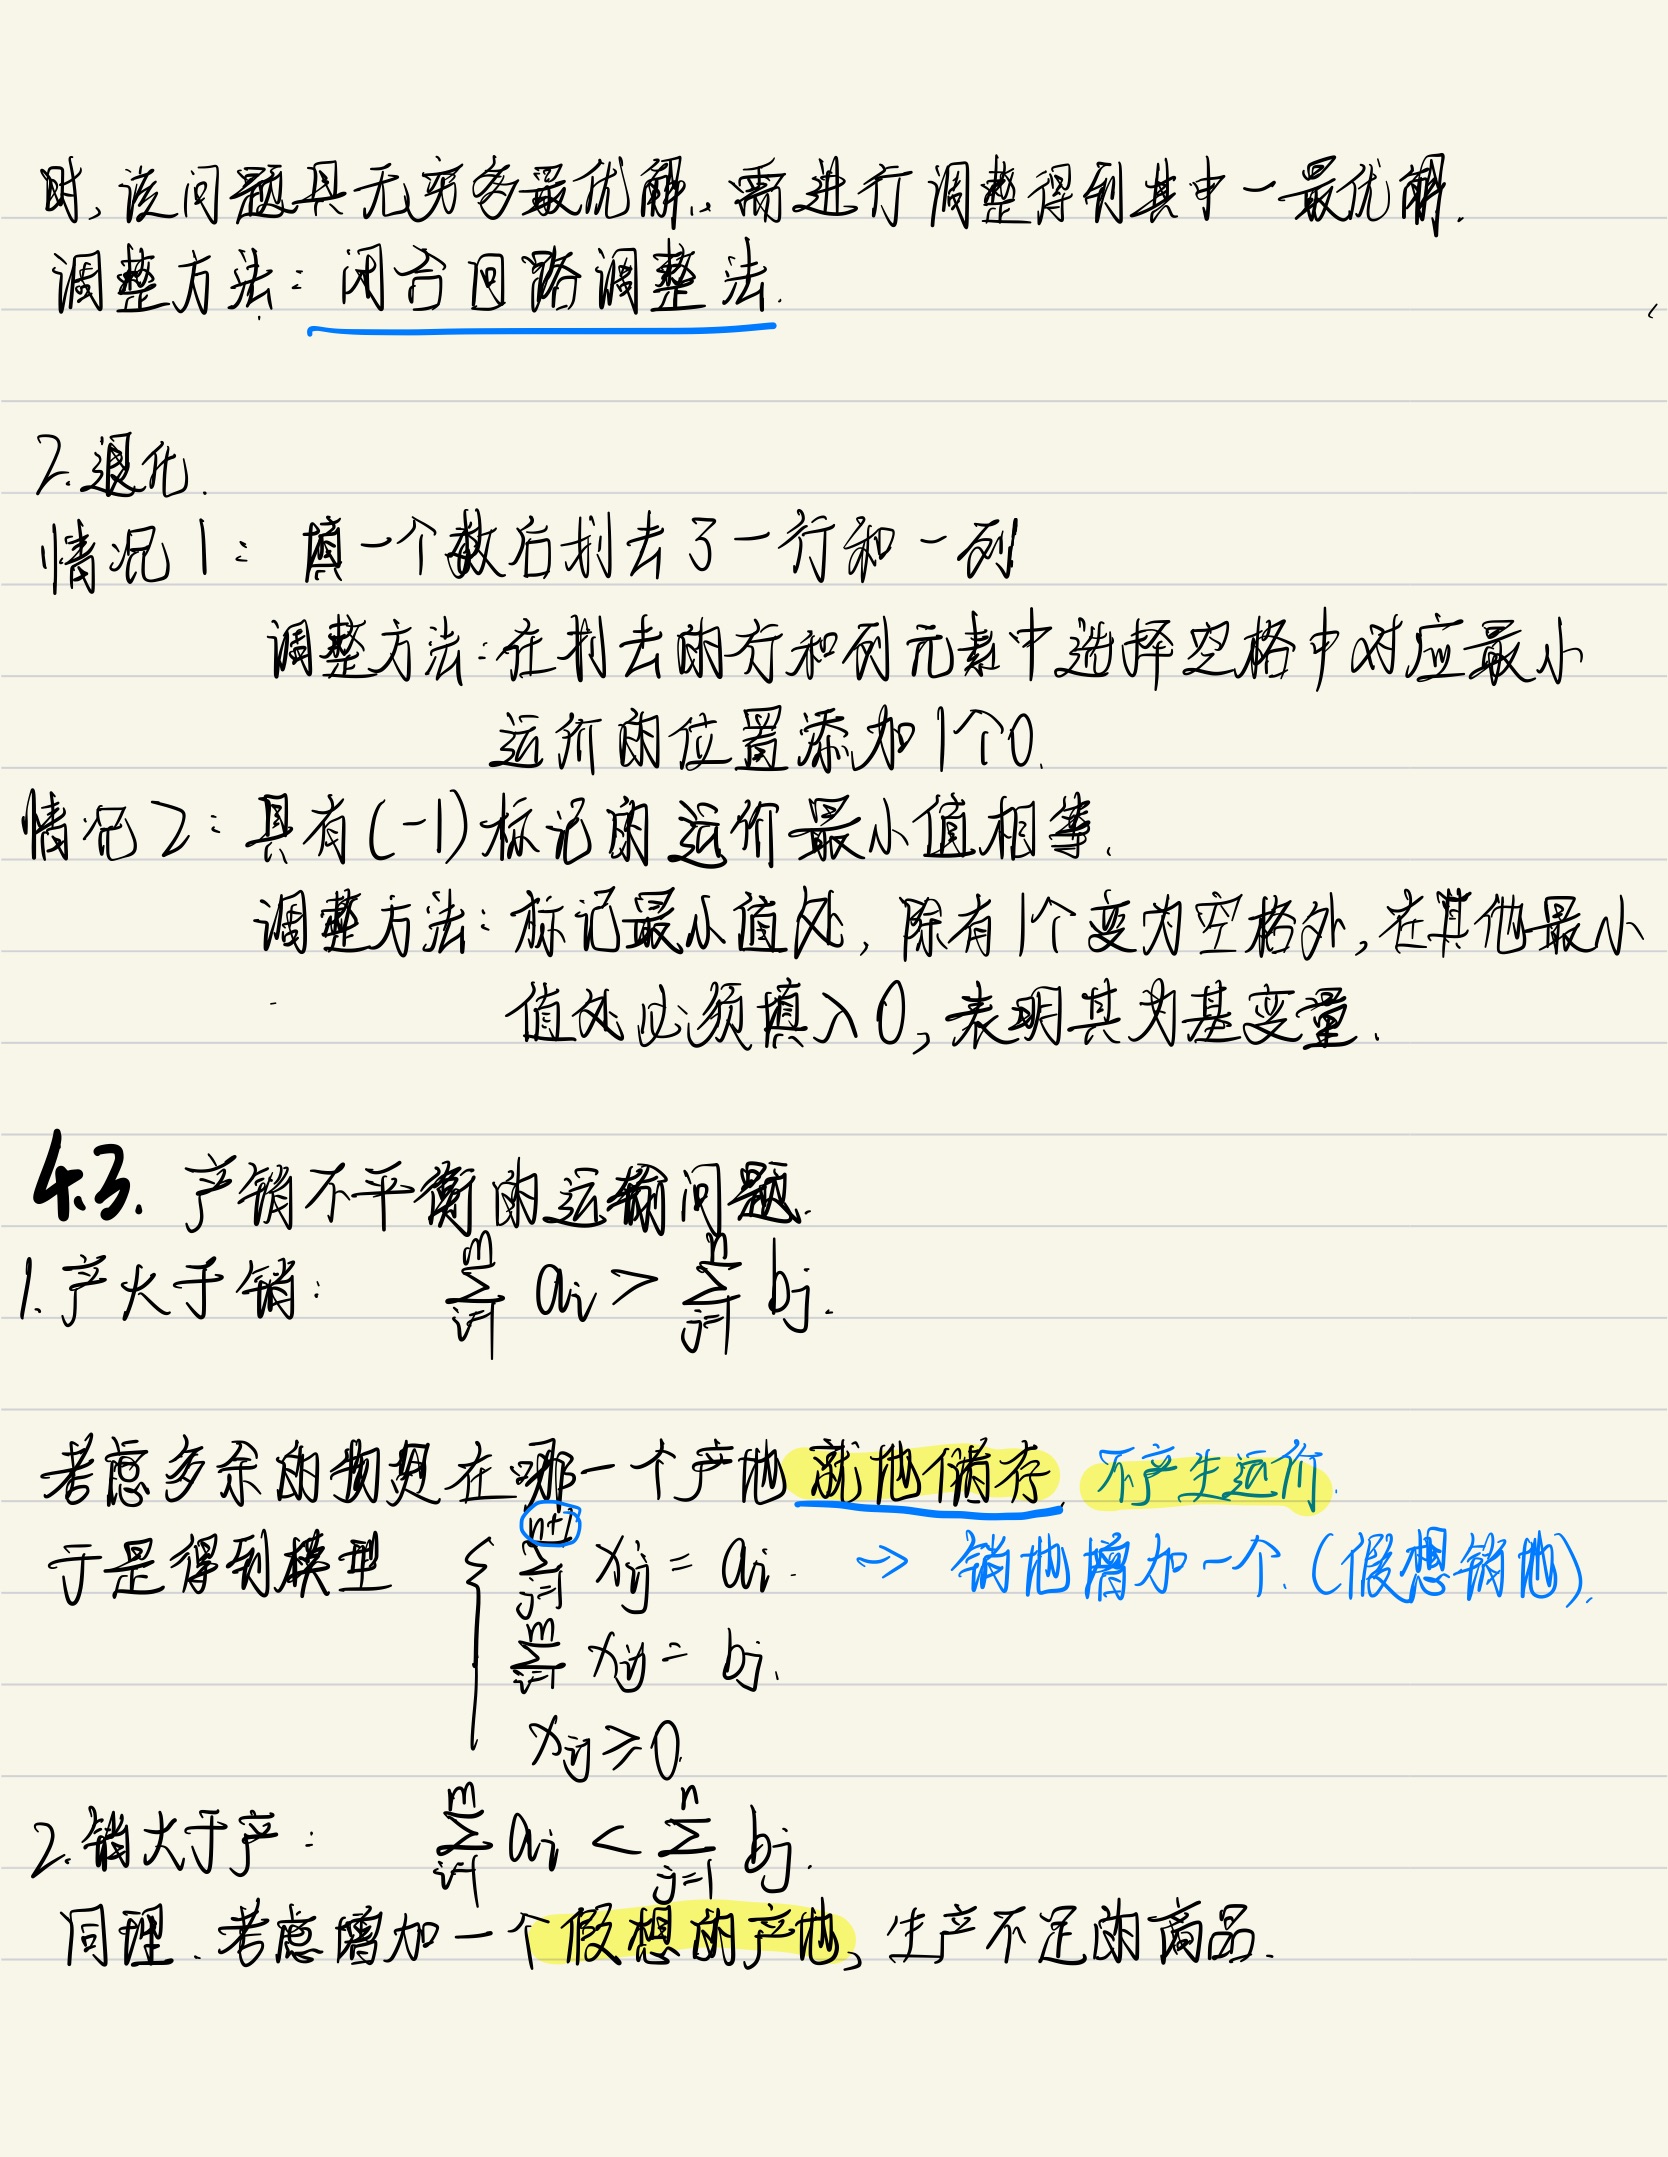 时,该问题具无穷多最优解.,需进行调整得到其中一最优解.
调整方法:闭合回路调整法.
2.退化.
情况1: 填一个数后划去了一行和一列
调整方法:在划去的行和列元素中选择空格中对应最小
运价的位置添加1个0.
情况2:具有(-1)标记的运价最小值相等.
调整方法:标记最小值处,除有1个变为空格外,在其他最小
值处必须填入0,表明其为基变量.
4.3. 产销不平衡的运输问题.
1.产大于销: $\sum_{i=1}^{m} a_i > \sum_{j=1}^{n} b_j$.
考虑多余的物更在哪一个产地就地储存. 不产生运价.
于是得到模型 $\begin{cases} \sum_{j=1}^{n+1} x_{ij} = a_i. \\ \sum_{i=1}^{m} x_{ij} = b_j. \\ x_{ij} \geq 0. \end{cases}$ → 销地增加一个.(假想销地).
2.销大于产: $\sum_{i=1}^{m} a_i < \sum_{j=1}^{n} b_j$.
同理.考虑增加一个假想的产地,生产不足的商品.